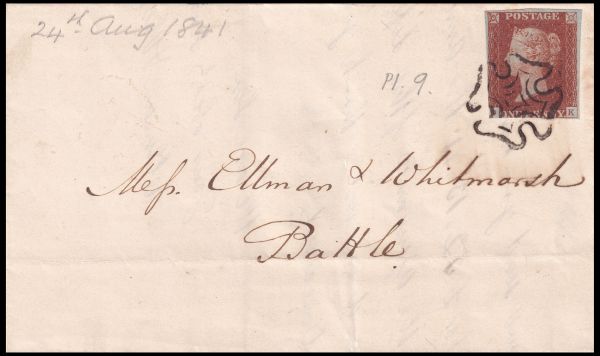 24th Aug 1841
POSTAGE
Pl. 9.
K
Mess. Ellman & Whitmarsh
Battle.